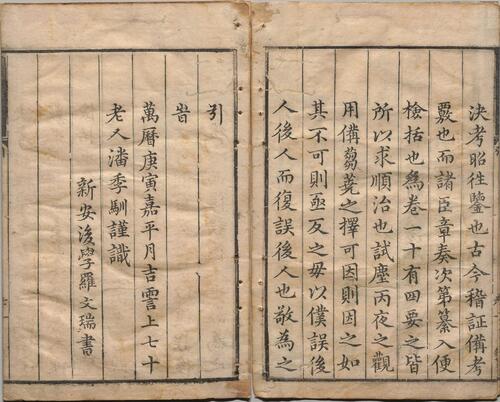 決考昭徃鑒也古今稽証備考
覈也而諸臣章奏次第纂入便
檢括也爲卷一十有四要之皆
所以求順治也試塵丙夜之觀
用備芻蕘之擇可因則因之如
其不可則亟反之毋以僕誤後
人後人而復誤後人也敬為之
引
旹
萬曆庚寅嘉平月吉霅上七十
老人潘季馴謹識
新安後學羅文瑞書